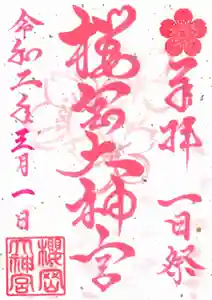 奉拝
一日祭
櫻岡大神宮
令和二年三月一日
櫻岡
大神宮